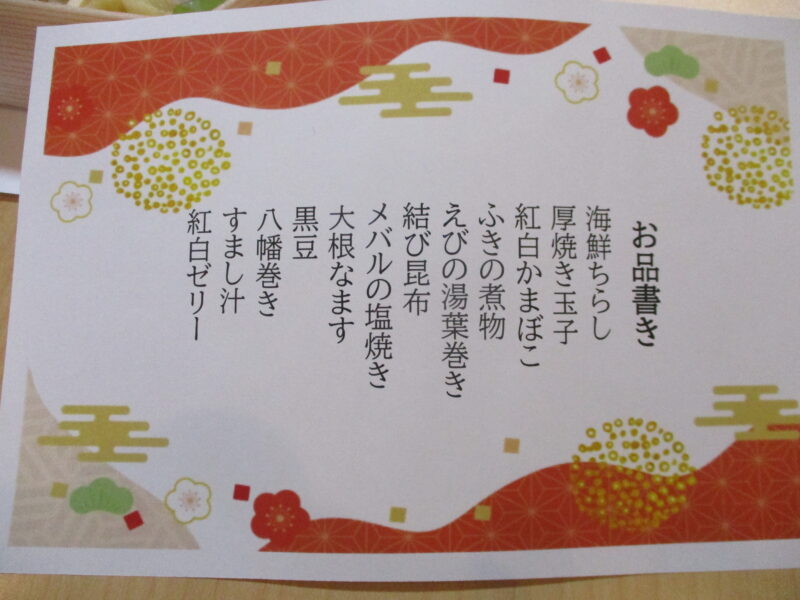 お品書き
海鮮ちらし
厚焼き玉子
紅白かまぼこ
ふきの煮物
えびの湯葉巻き
結び昆布
メバルの塩焼き
大根なます
黒豆
八幡巻き
すまし汁
紅白ゼリー